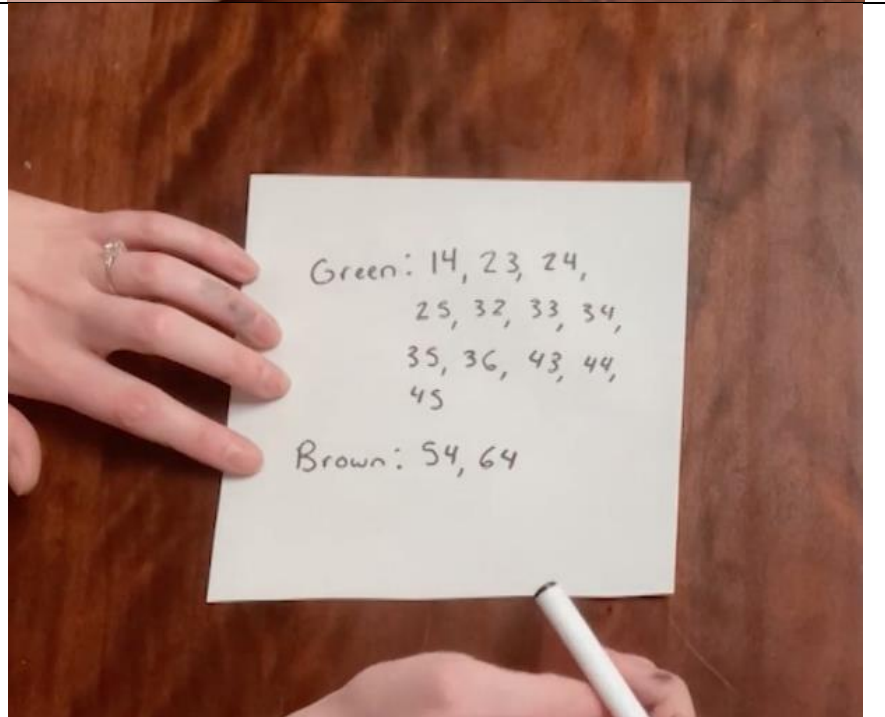 Green: 14, 23, 24,
25, 32, 33, 34,
35, 36, 43, 44,
45
Brown: 54, 64